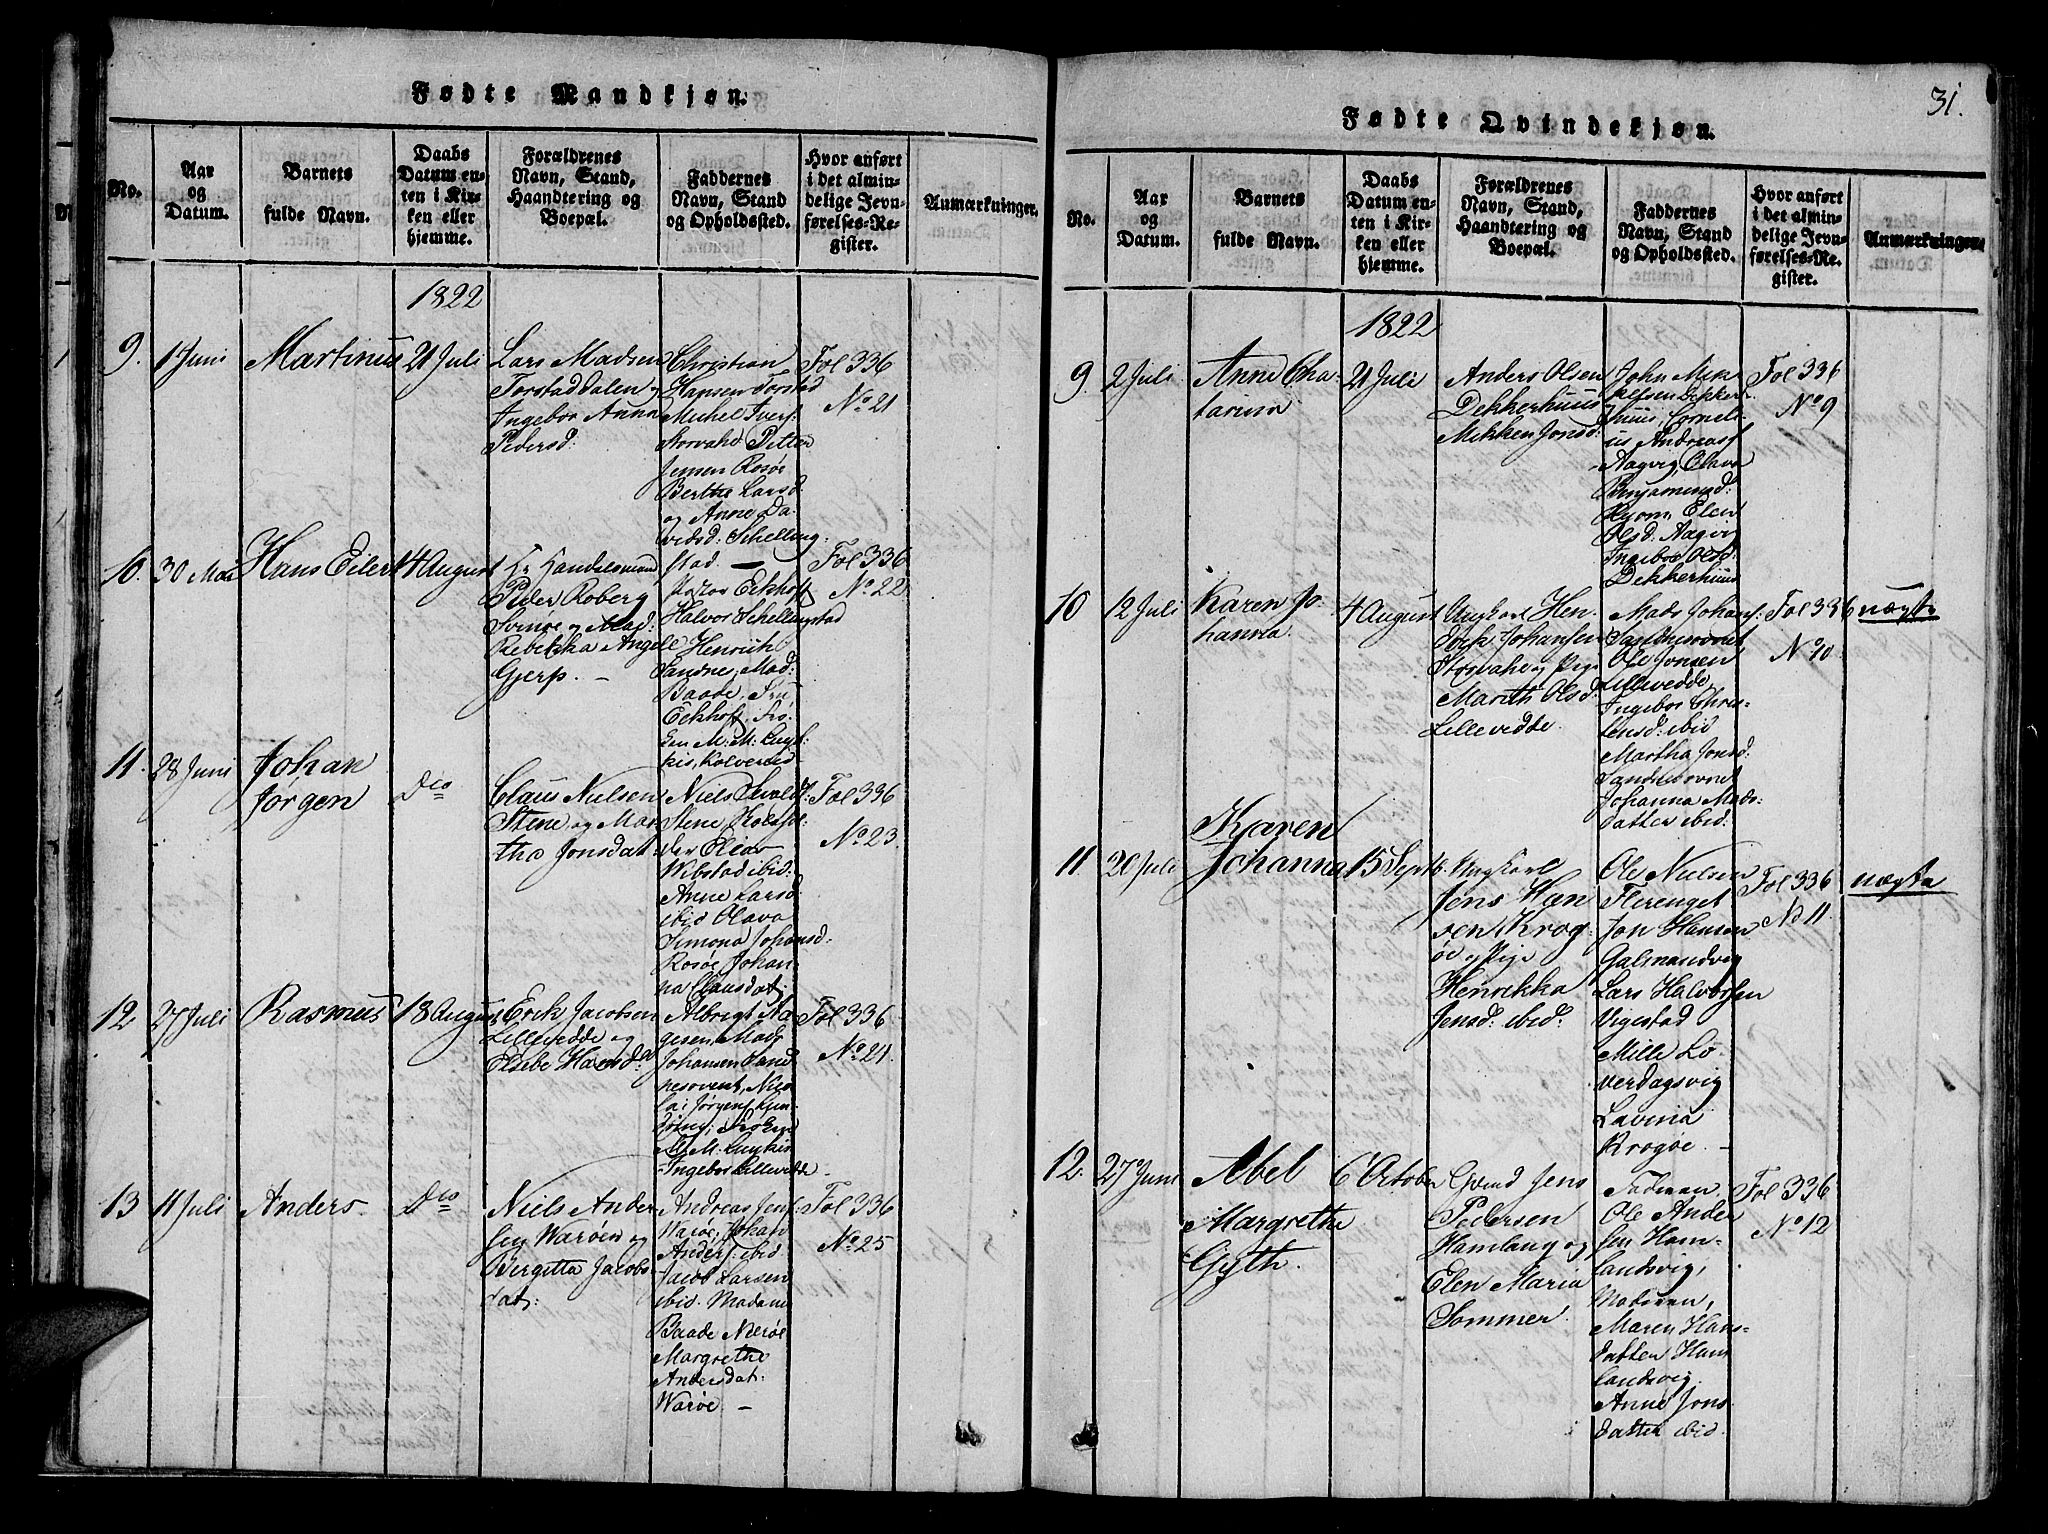 Fødte Mandkjøn.
No.
Aar
og
Datum.
Barnets
fulde Navn.
Daabs
Datum en-
ten i Kir-
ken eller
hjemme.
Forældrenes
Navn, Stand,
Haandtering og
Boepæl.
Faddernes
Navn, Stand
og Opholdssted.
Hvor anført
i det almin-
delige Jevn-
førelses-Re-
gister.
Anmærkninger.
1822
9.
1 Juni
Martinus
21 Juli
Lars Madsen
Torstad dalen og
Ingebor Anna
Pedersd.
Christian
Hansen Torstad
Michel Ivers.
Storvahd Petter
Jensen Rosøe
Berthe Larsd.
og Anne Da-
vidsd: Schelling-
stad. —
Fol 336
No 21
10.
30 Mai
Hans Eiler
14 August
Hr Handelsmand
Peder Roberg
Svinøe og Mad:
Rebekka Angell
Gjerp. —
Pastor Eckhoff
Halvor Schellingstad
Henrich
Sandnes, Mad:
Baade, Fru
Eckhoff, Frø-
ken M: M: Luyt-
kis, Kolvereid
Fol 336
No 22
11.
28 Juni
Johan
Jørgen
Dco
Claus Nielsen
Stene og Mar-
tha Jonsdat:
Niels
Stene
Elias
Wibstad ibid:
Anne Larsd
ibid Olava
Simona Johansd.
Rosøe Johan-
na Clausdat:
Fol 336
No 23.
12.
27 Juli
Rasmus
18 August
Erik Jacobsen
Lillevedde og
Elsebe Hansda
Albrigt Aa-
gesen, Mads
Johansen Sand-
nesovent, Nico-
lai Jørgens.
M. M: Luytkis
Ingebor Lillevedde —
Fol 336
No 24.
13
11 Juli
Anders
Dco
Niels Ander
sen Warøen og
Bergitta Jacobs
dat:
Andreas Jens.
Warøe, Johan
Anders. ibid.
Jacob Larsen
ibid. Madame
Baade Nerøe
Margrethe
Andersdat:
Warøe. —
Fol 336
No 25
31.
Fødte Qvindekjøn.
No.
Aar
og
Datum.
Barnets
fulde Navn.
Daabs
Datum en-
ten i Kir-
ken eller
hjemme.
Forældrenes
Navn, Stand,
Haandtering og
Boepæl.
Faddernes
Navn, Stand
og Opholdssted.
Hvor anført
i det almin-
delige Jevn-
førelses-Re-
gister.
Anmærkninger.
1822
9
2 Juli
Anne Cha-
tarina
21 Juli
Anders Olsen
Dekkerhuus
Mikken Jonsd:
John Mik
kelsen Dekker-
huus, Corneli-
us Andreas.
Aagvig, Olava
Benjaminsd:
Ryom, Elen
Olsd: Aagvig
Ingebor Olsd.
Dekkerhuus
Fol 336
No 9
10
12 Juli
Karen Jo-
hanna.
4 August
Ungkarl Hen-
drik Johansen
Storvahe og Pige
Marith Olsd.
Lillevedde.
Mads Johans.
Sandnesovnet
Ole Jonsen
Lillevedde,
Ingebor Chris-
tensd: ibid
Martha Jonsd:
Sandnesovnet
Johanna Mads-
datter ibid:
Fol 336
No 10.
uægte
11.
20 Juli
Karen
Johanna
15 Septb.
Ungkarl
Jens Han
sen Krog-
øe og Pige
Henrikka
Jensd: ibid:
Ole Nielsen
Flerenget
Jon Hansen
Galmandvig
Lars Halvorsen
Vigestad
Mille Lo-
verdagsvig
Lavina
Krogøe. —
Fol 336
No 11.
uægte
12.
27 Juni
Abel
Margrethe
Gyth.
6 October
Gvend Jens
Pedersen
Hamlang og
Elen Maria
Sommer.
Faderen.
Ole Ander
sen Ham-
landsvig,
Moderen,
Maren Hans-
datter Ham
landsvig.
Anne Jons
datter ibid.
Fol 336
No 12